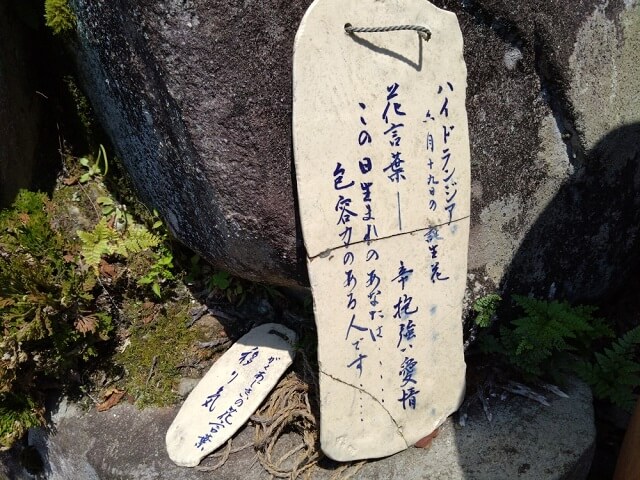 ハイドランジア
六月十九日の誕生花
花言葉 ― 辛抱強い愛情
この日生まれのあなたは……
包容力のある人です……
がくあじさいの花言葉
移り気